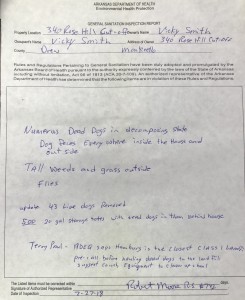 ARKANSAS DEPARTMENT OF HEALTH
Environmental Health Protection
GENERAL SANITATION INSPECTION REPORT
Property Location 340 Rose Hill Cut-off Owner's Name Vicky Smith
Occupant's Name Vicky Smith Address of Owner 340 Rose Hill Cut-off
County Drew Monticello
Rules and Regulations Pertaining to General Sanitation have been duly adopted and promulgated by the
Arkansas Board of Health pursuant to the authority expressly conferred by the laws of the State of Arkansas
including without limitation, Act 96 of 1913 An authorized representative of the Arkansas
Department of Health has determined that the following items are in violation of these Rules and Regulations:
Numerous Dead Dogs in decomposing state
Dog Feces Everywhere inside the house and
outside
Tall weeds and grass outside
Flies
update 43 live dogs removed
20 gal storage totes with dead dogs in them behind house
Terry Paul - ADEQ says Hamburg is the closest class 1 landfill
call before hauling dead dogs to the landfill
suggest equipment to clean
The Listed items must be corrected within
Signature of Authorized Representative
Date of Inspection 7-27-18